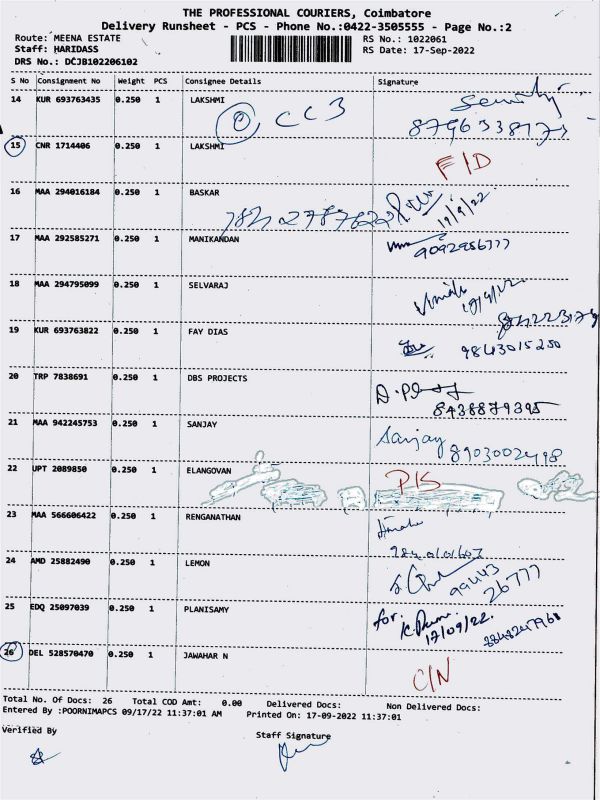 THE PROFESSIONAL COURIERS, Coimbatore
Delivery Runsheet - PCS - Phone No.:0422-3505555 - Page No.:2
Route: MEENA ESTATE RS No.: 1022061
Staff: HARIDASS RS Date: 17-Sep-2022
DRS No.: DCJB102206102
S No Consignment No Weight PCS Consignee Details Signature
14 KUR 693763435 0.250 1 LAKSHMI CC3
15 CNR 1714406 0.250 1 LAKSHMI F/D
16 MAA 294016184 0.250 1 BASKAR 17/9/22
17 MAA 292585271 0.250 1 MANIKANDAN
9092956777
18 MAA 294795099 0.250 1 SELVARAJ
19 KUR 693763822 0.250 1 FAY DIAS 9843015250
20 TRP 7838691 0.250 1 DBS PROJECTS
8438879395
21 MAA 942245753 0.250 1 SANJAY Sanjay
8903002498
22 UPT 2089850 0.250 1 ELANGOVAN
23 MAA 566606422 0.250 1 RENGANATHAN
24 AMD 25882490 0.250 1 LEMON 99443
26777
25 EDQ 25097039 0.250 1 PLANISAMY for.
17/09/22.
26 DEL 528570470 0.250 1 JAWAHAR N C/N
Total No. Of Docs: 26 Total COD Amt: 0.00 Delivered Docs: Non Delivered Docs:
Entered By :POORNIMAPCS 09/17/22 11:37:01 AM Printed On: 17-09-2022 11:37:01
Verified By Staff Signature